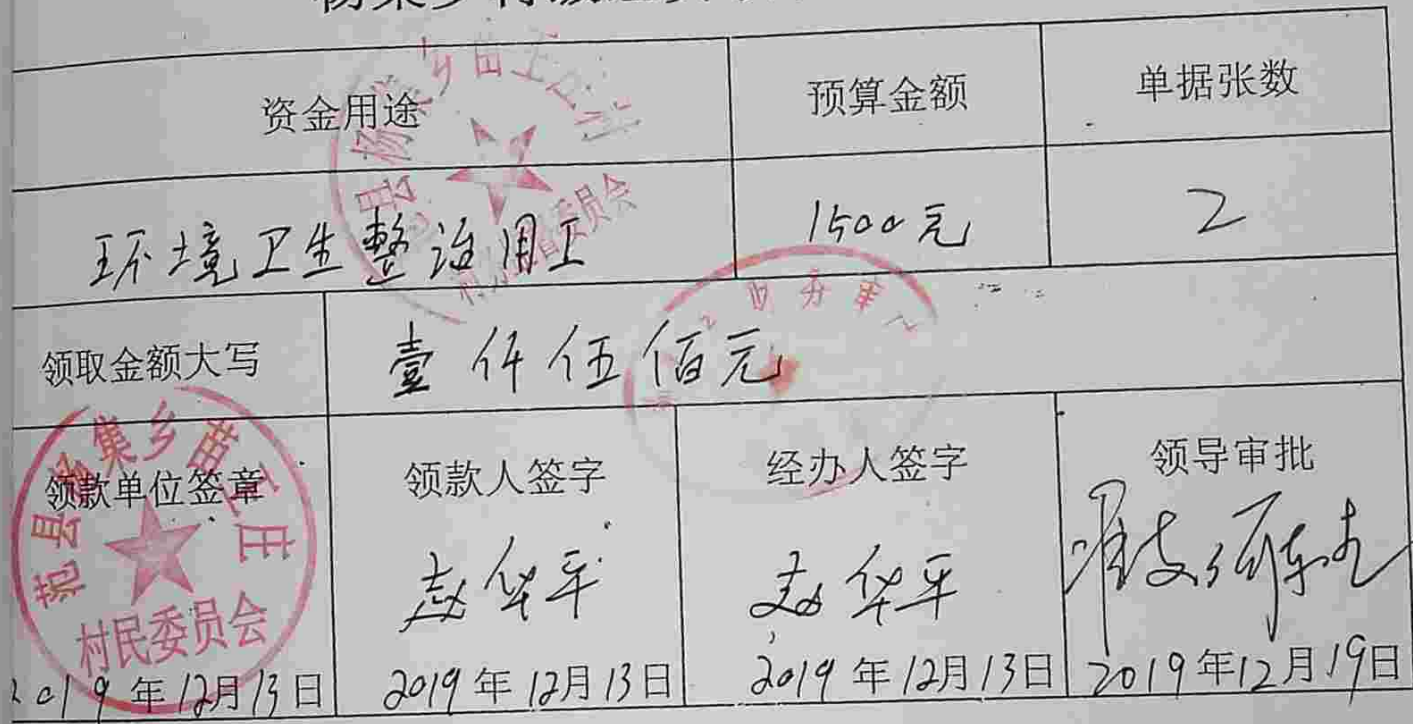 资金用途 预算金额 单据张数
环境卫生整治用工 1500元 2
领取金额大写 壹仟伍佰元
领款单位签章 领款人签字 经办人签字 领导审批
范县杨集乡苗王庄
村民委员会
赵华平 赵华平
2019年12月13日 2019年12月13日 2019年12月13日 2019年12月19日